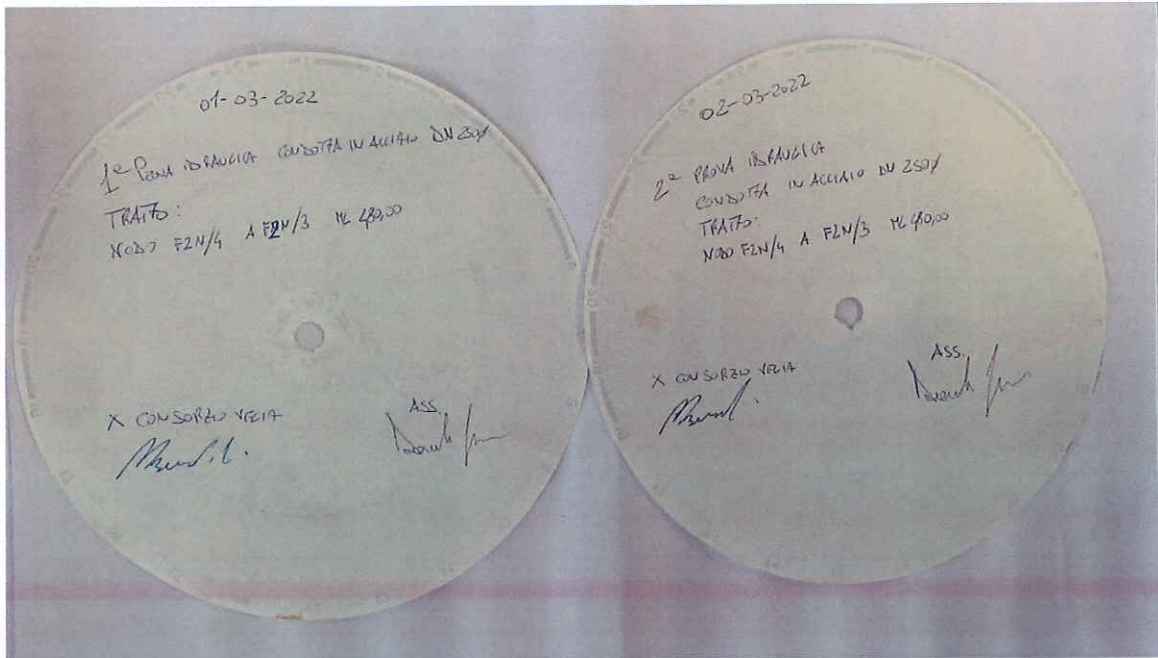 01-03-2022
1ª PROVA IDRAULICA CONDOTTA IN ACCIAIO DN 250
TRATTO:
NODO F2N/4 A F2N/3 ML 480,00
X CONSORZIO VELIA
ASS.
02-03-2022
2ª PROVA IDRAULICA
CONDOTTA IN ACCIAIO DN 250
TRATTO:
NODO F2N/4 A F2N/3 ML 480,00
X CONSORZIO VELIA
ASS.